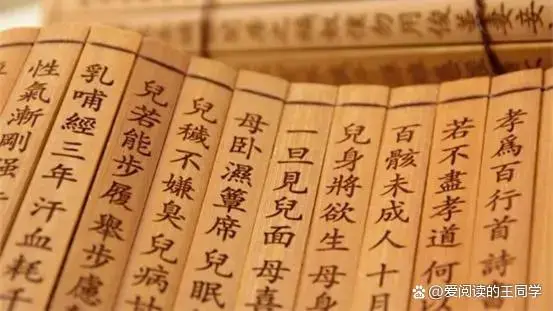 孝爲百行首詩
若不盡孝道何以
百骸未成人十月
兒身將欲生母身
一旦見兒面母喜
母卧濕簟席兒眠
兒穢不嫌臭兒病甘
兒若能步履舉步慮
乳哺經三年汗血耗千
性氣漸剛强
@爱阅读的王同学